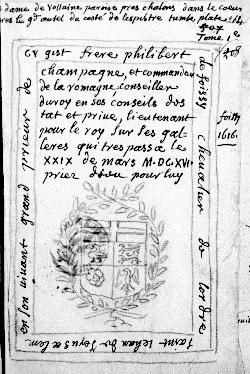 dame de vollaine paroise pres chalons dans le coeur
pres le gd autel du costé de l'epistre tumbe plate
Tome 1er
208
cy gist frere philibert
de foissy chevalier de lordre
saint jehan de Jerusalem
en son vivant grand prieur de
champagne, et commandeur
de la romagne conseiller
du roy en ses conseils des
tat et prive, lieutenant
pour le roy sur les gal-
leres qui trespassa le
XXIX de mars M.DC.XVI
priez dieu pour luy
foissy
1616.